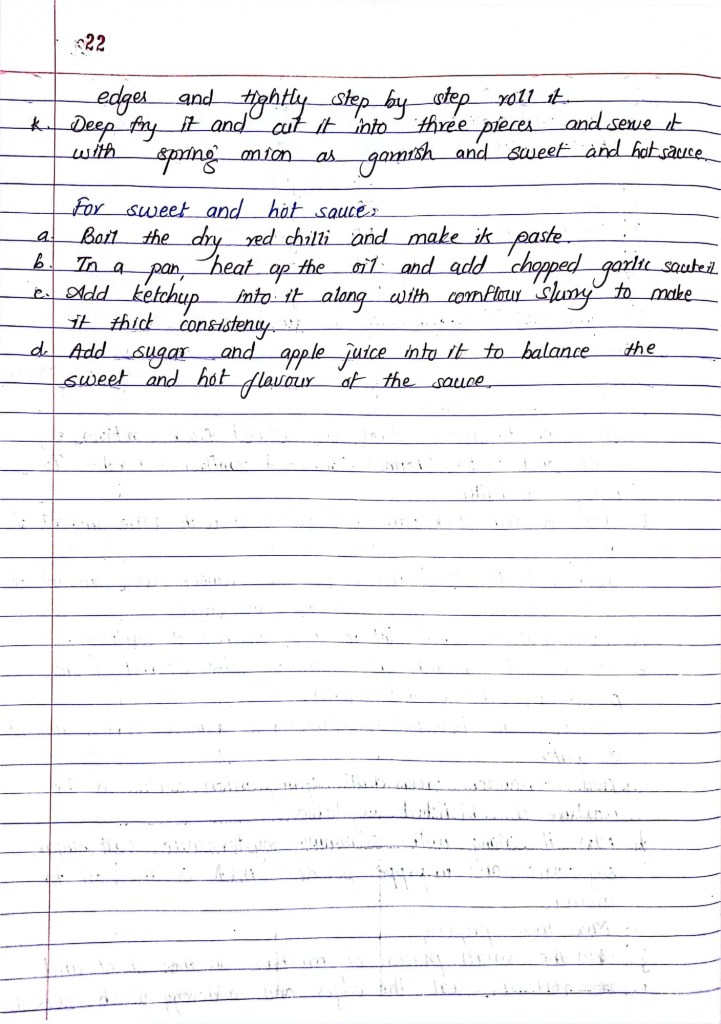 22
edges and tightly step by step roll it.
k. Deep fry it and cut it into three pieces and serve it
with spring onion as garnish and sweet and hot sauce.
For sweet and hot sauce:
a. Boil the dry red chilli and make it's paste.
b. In a pan, heat up the oil and add chopped garlic saute it.
c. Add ketchup into it along with cornflour slurry to make
it thick consisteny.
d. Add sugar and apple juice into it to balance the
sweet and hot flavour of the sauce.